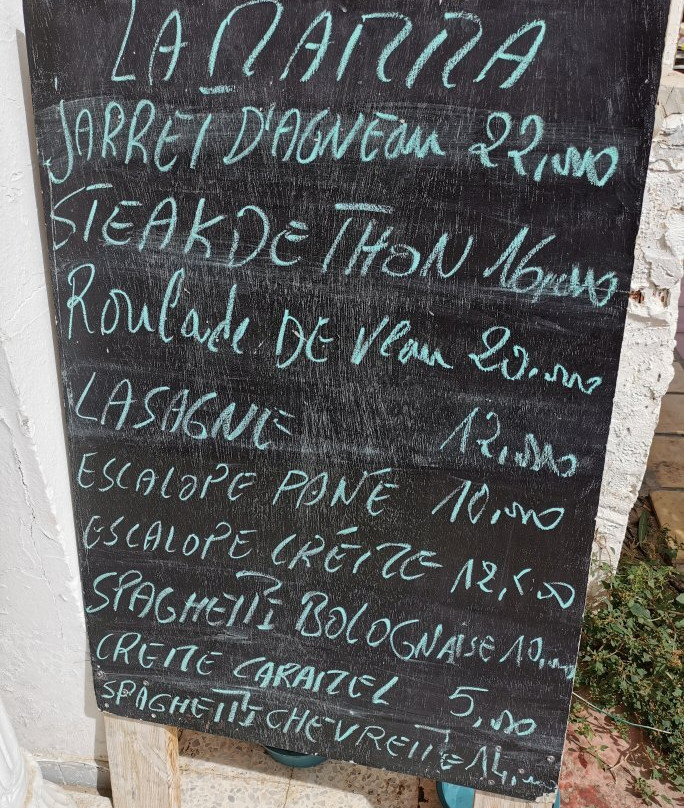 LA MAMMA
JARRET D'AGNEau 22,000
STEAK DE THON 16,000
Roulade DE Veau 20,000
LASAGNE 12,000
ESCALOPE PANÉ 10,000
ESCALOPE CRÉME 12,500
SPAGHETTI BOLOGNAISE 10,000
CREME CARAMEL 5,000
SPAGHETTI CHEVRETTE 14,000